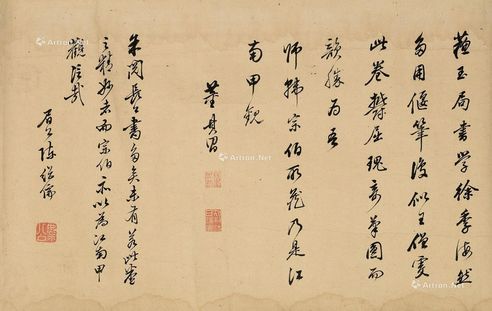 苏玉局書学徐季海然
多用偃筆復似王僧虔
此卷欝屈瑰奇華圓而
韻勝乃吾
師韓宗伯所藏乃是江
南甲観
董其昌
米閱長公書多矣未有若此卷
之精妙者而宗伯亦以為江南甲
觀信哉
眉公陳繼儒
Artron.Net
Artron.Net
Artron.Net
Artron.Net